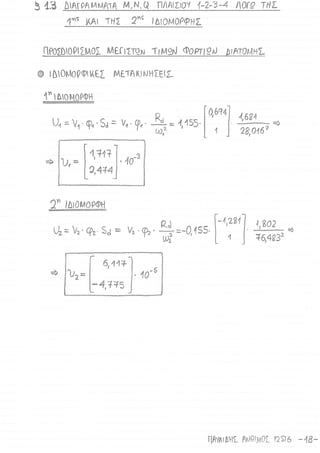 § 1.3 ΔΙΑΓΡΑΜΜΑΤΑ M, N, Q ΠΛΑΙΣΙΟΥ 1-2-3-4 ΛΟΓΩ ΤΗΣ
1ης ΚΑΙ ΤΗΣ 2ης ΙΔΙΟΜΟΡΦΗΣ
ΠΡΟΣΔΙΟΡΙΣΜΟΣ ΜΕΓΙΣΤΩΝ ΤΙΜΩΝ ΦΟΡΤΙΩΝ ΔΙΑΤΟΜΗΣ
ΙΔΙΟΜΟΡΦΙΚΕΣ ΜΕΤΑΚΙΝΗΣΕΙΣ
1η ΙΔΙΟΜΟΡΦΗ
U₁ = V₁ · φ₁ · Sd = V₁ · φ₁ · Rd/ω₁² = 1,155 · [0,694 1] · 1,681/28,016² ⇒
⇒ U₁ = [1,717 2,474] · 10⁻³
2η ΙΔΙΟΜΟΡΦΗ
U₂ = V₂ · φ₂ · Sd = V₂ · φ₂ · Rd/ω₂² = -0,155 · [-1,281 1] · 1,802/76,483² ⇒
⇒ U₂ = [6,117 -4,775] · 10⁻⁵
-18-